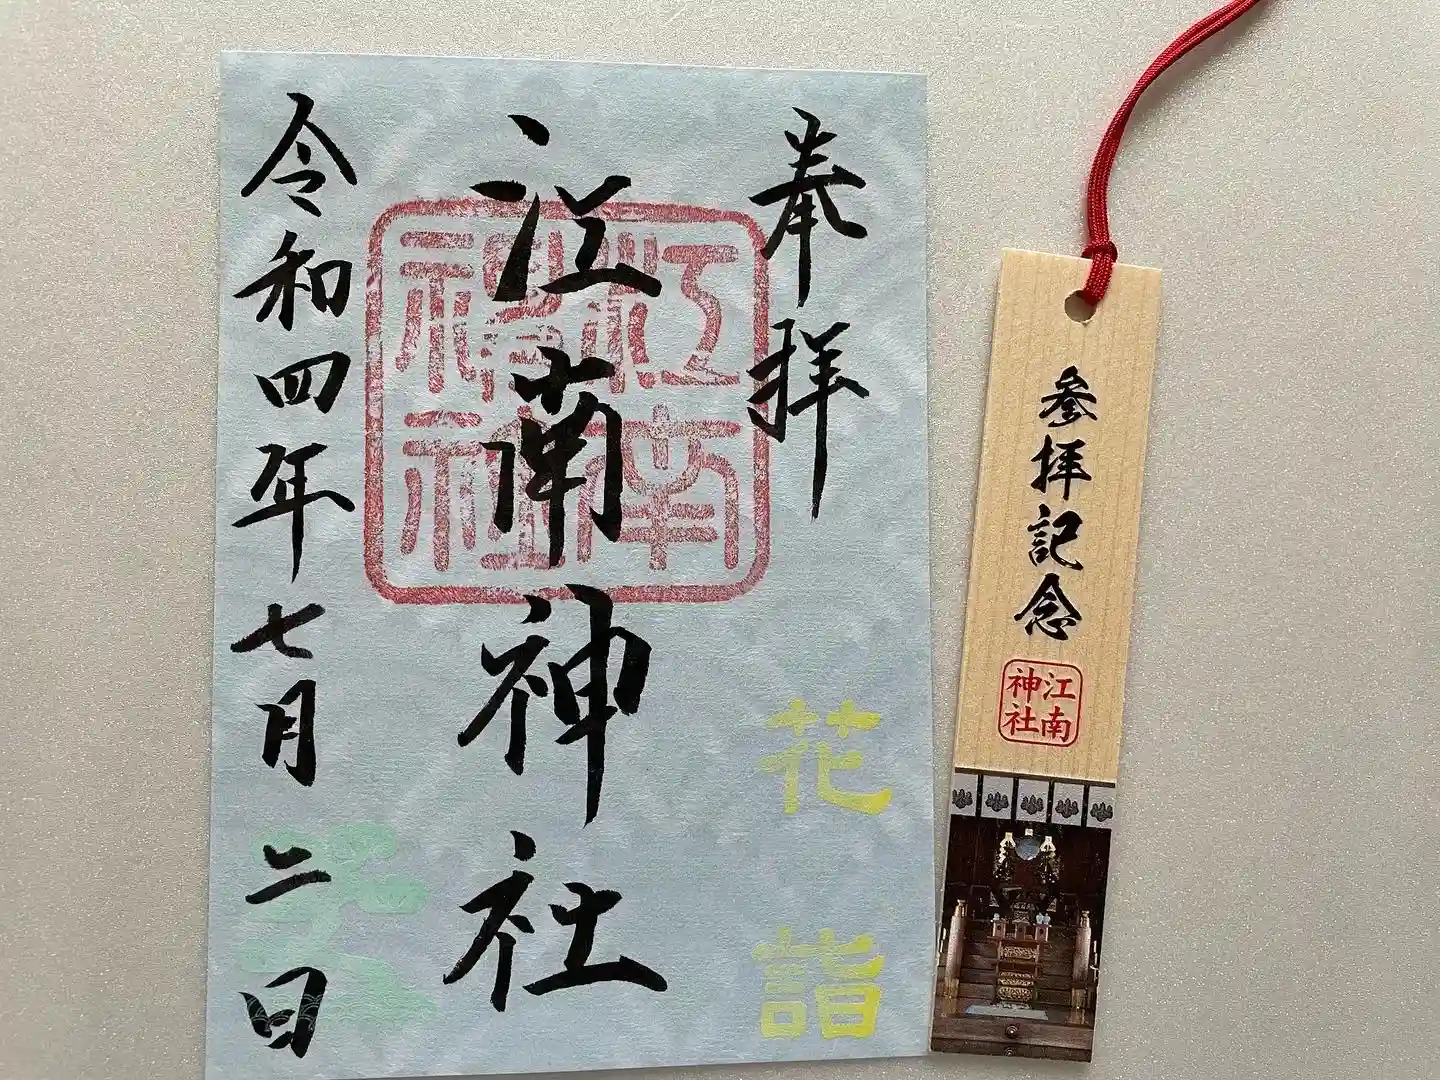 奉拝
花詣
江南神社
江南神社
令和四年七月二日
参拝記念
江南
神社